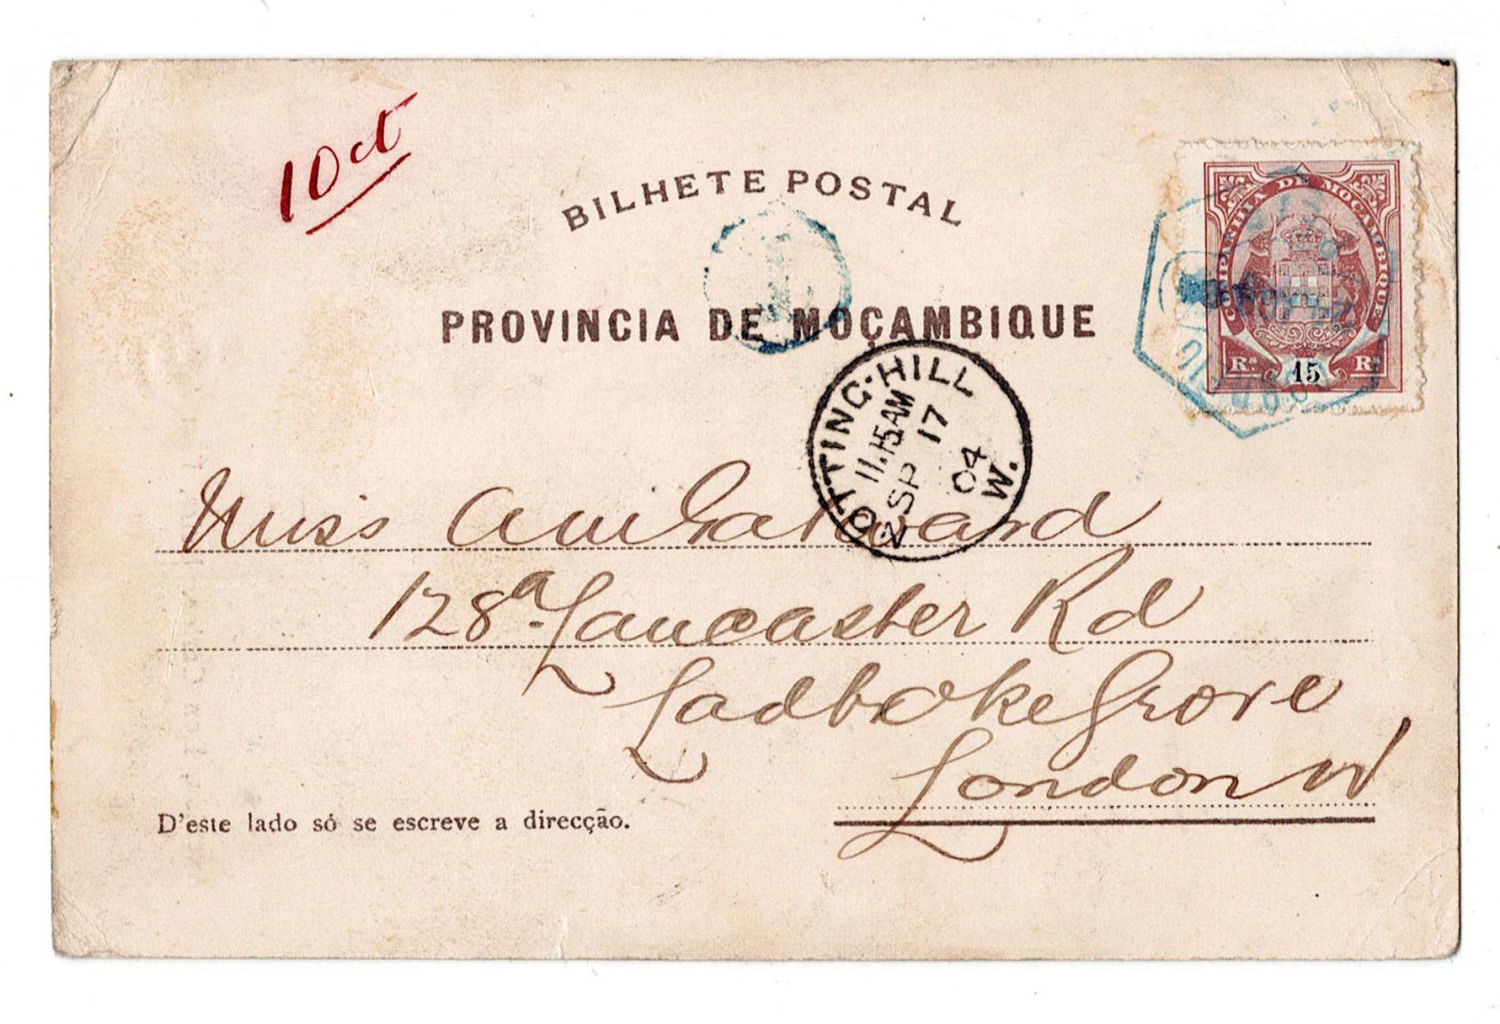 10ct
BILHETE POSTAL
PROVINCIA DE MOÇAMBIQUE
COMPANHIA DE MOÇAMBIQUE
Rs 15 Rs
NOTTING-HILL
11.15AM
SP 17
04
W.
Miss
128a Lancaster Rd
Ladbroke Grove
London W
D'este lado só se escreve a direcção.